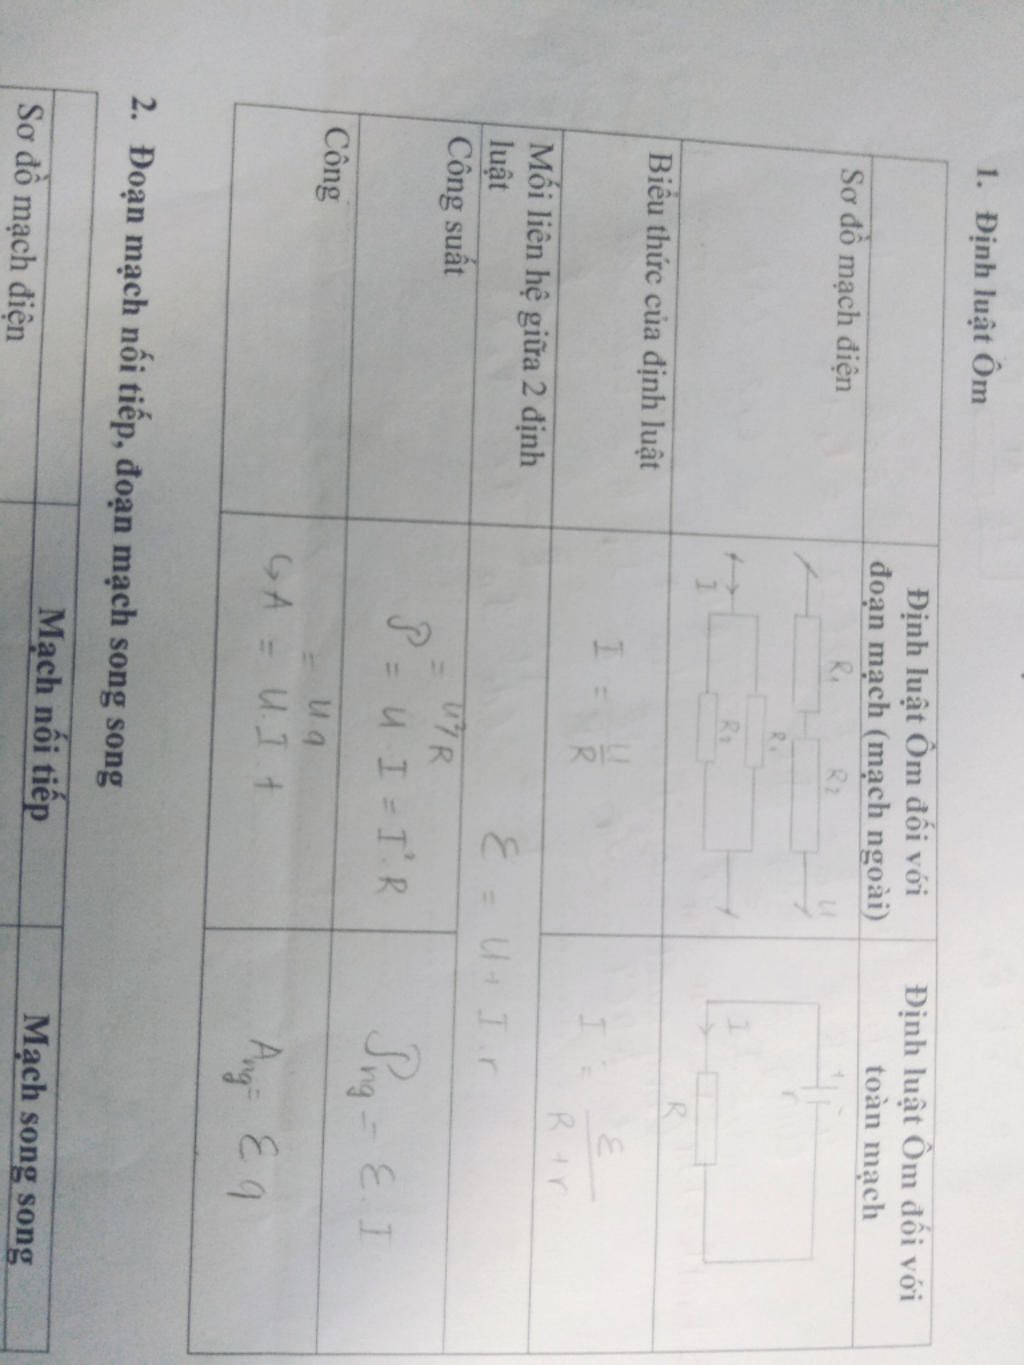 1. Định luật Ôm
Định luật Ôm đối với
đoạn mạch (mạch ngoài)
Định luật Ôm đối với
toàn mạch
Sơ đồ mạch điện
R₁ R₂ U
R₁
R₂
I
+ -
r
I
R
Biểu thức của định luật
I = U/R
I = ℰ/(R+r)
Mối liên hệ giữa 2 định
luật
ℰ = U + I.r
Công suất
= U²/R
𝒫 = U.I = I².R
𝒫ng = ℰ.I
Công
= Uq
↳ A = U.I.t
Ang = ℰq
2. Đoạn mạch nối tiếp, đoạn mạch song song
Mạch nối tiếp
Mạch song song
Sơ đồ mạch điện